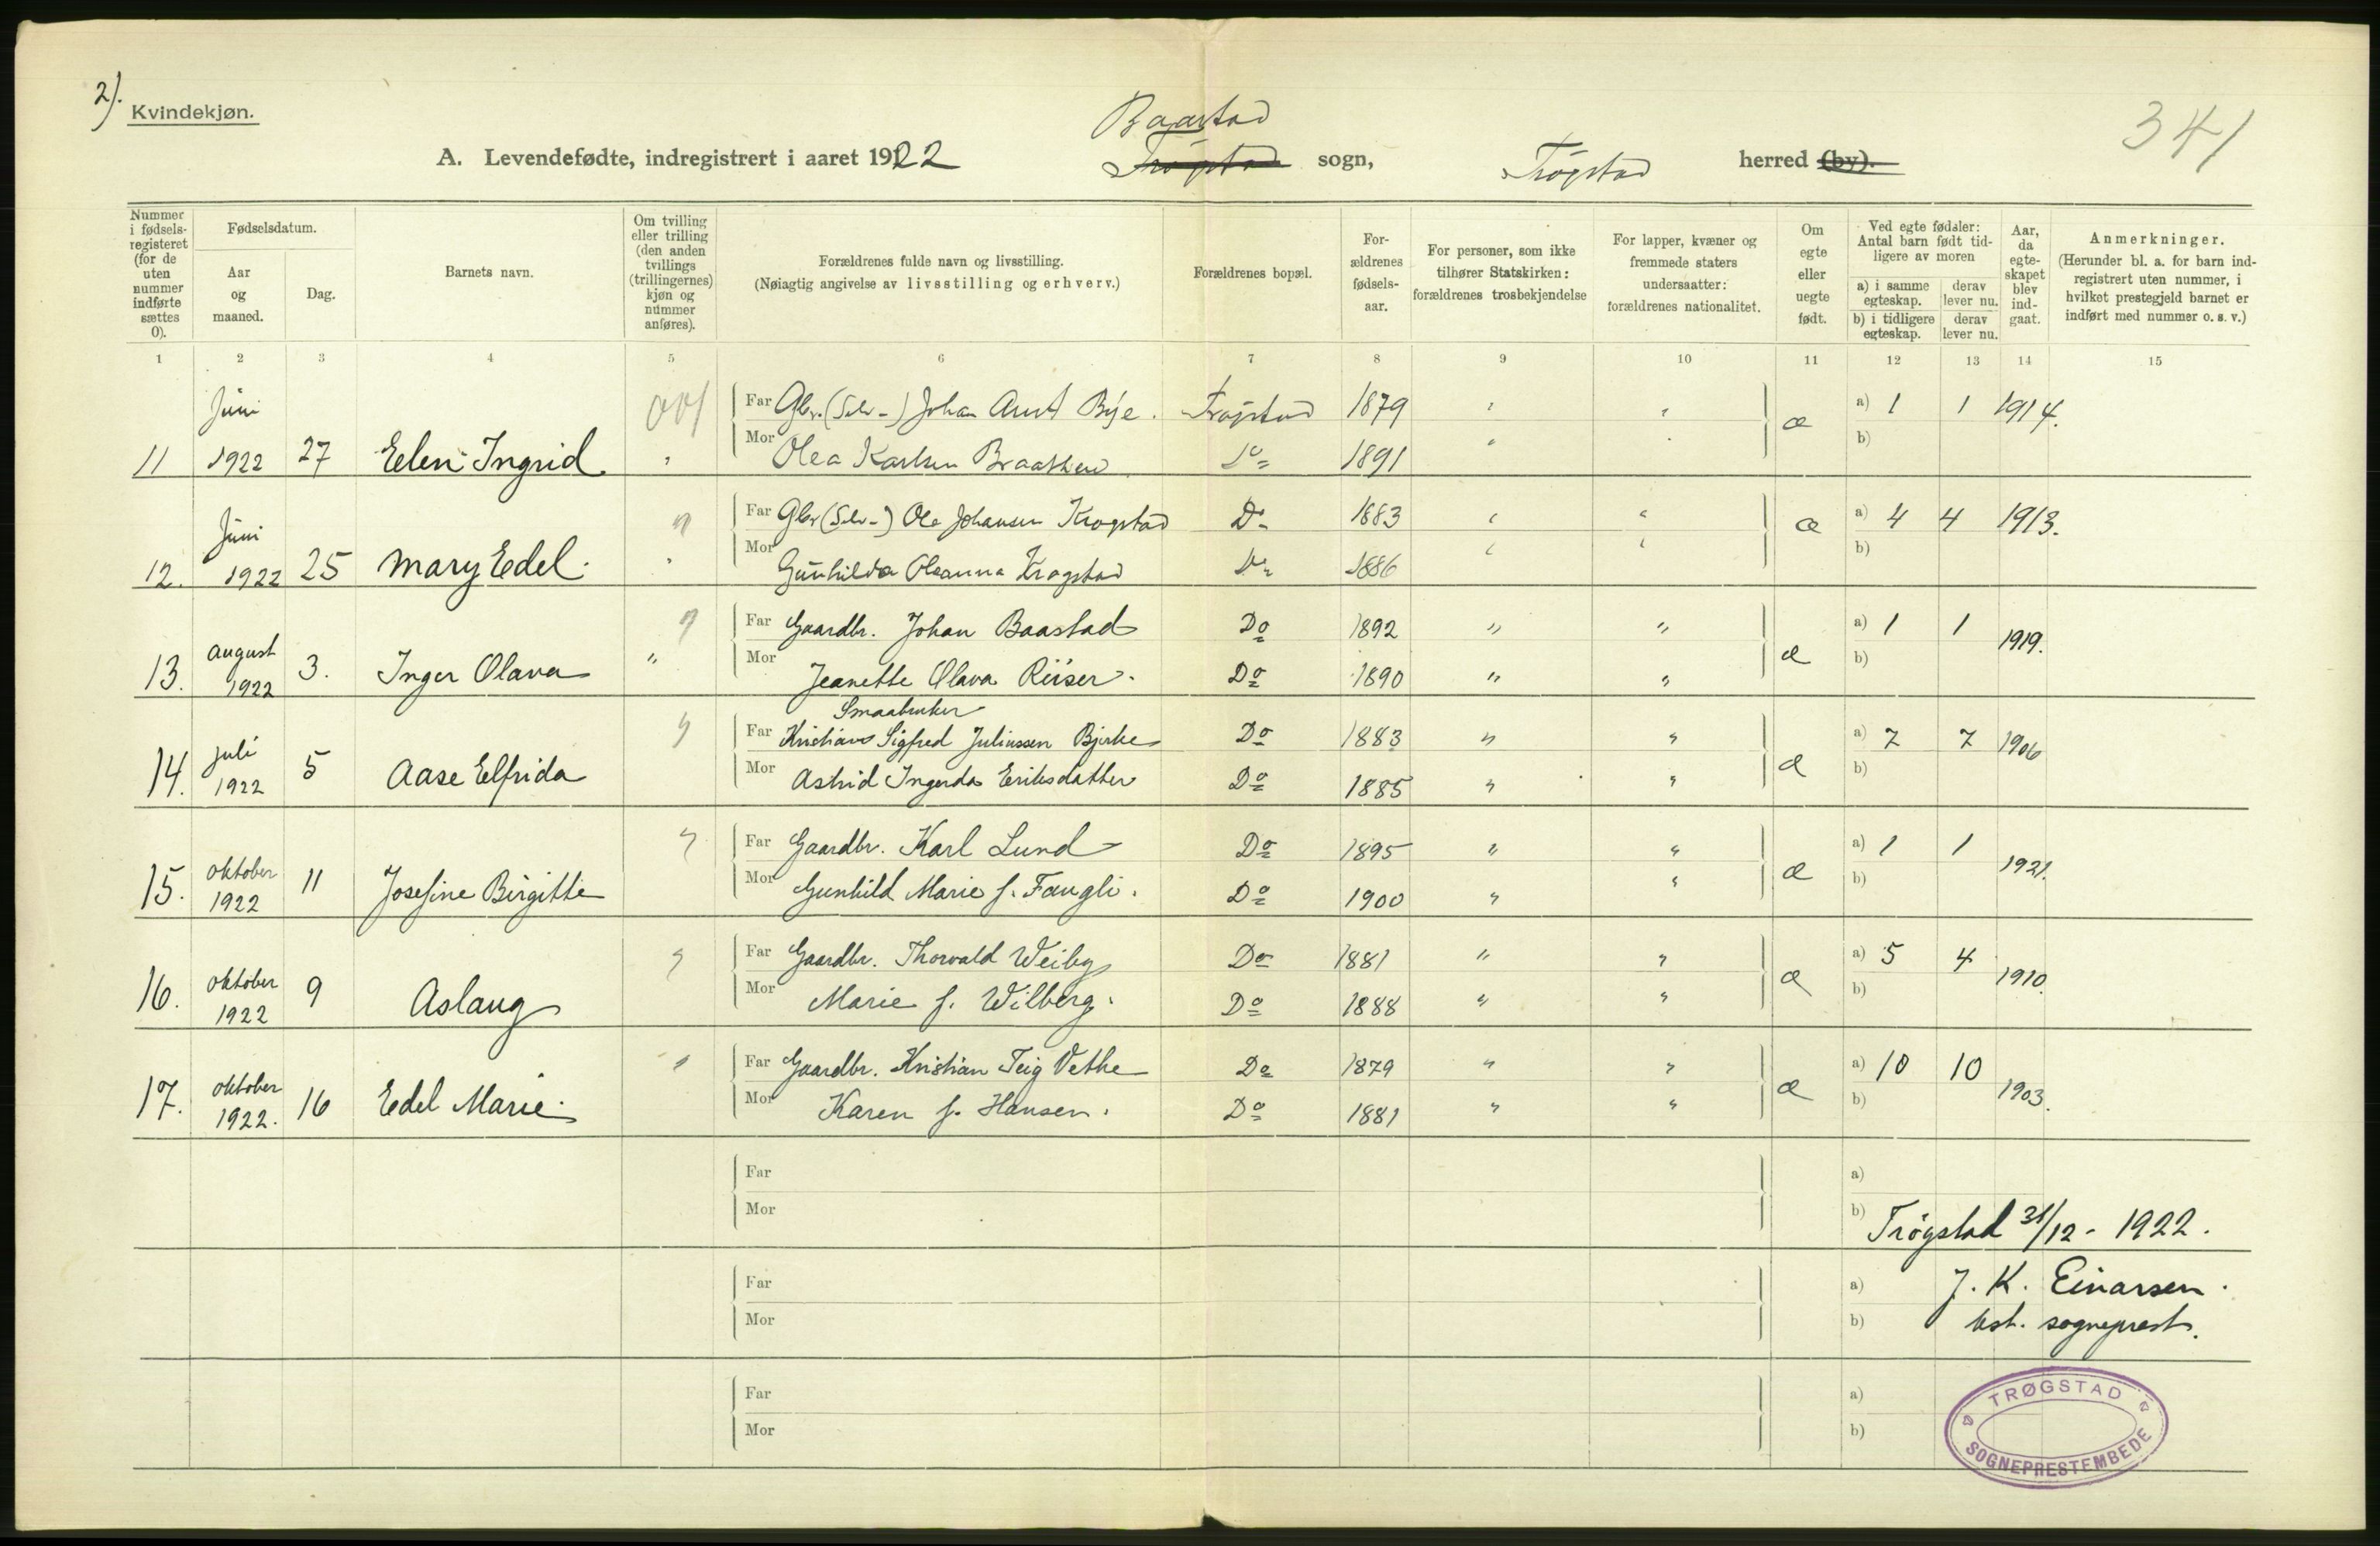 2).
Kvindekjøn.
341
Baastad
A. Levendefødte, indregistrert i aaret 1922 Trøgstad sogn, Trøgstad herred (by).
Nummer i fødselsregisteret (for de uten nummer indførte sættes 0).
Fødselsdatum.
Aar og maaned.
Dag.
Barnets navn.
Om tvilling eller trilling (den anden tvillings (trillingernes) kjøn og nummer anføres).
Forældrenes fulde navn og livsstilling.
(Nøiagtig angivelse av livsstilling og erhverv.)
Forældrenes bopæl.
Forældrenes fødselsaar.
For personer, som ikke tilhører Statskirken: forældrenes trosbekjendelse
For lapper, kvæner og fremmede staters undersaatter: forældrenes nationalitet.
Om egte eller uegte født.
Ved egte fødsler: Antal barn født tidligere av moren
a) i samme egteskap. derav lever nu.
b) i tidligere egteskap. derav lever nu.
Aar, da egteskapet blev indgaat.
Anmerkninger.
(Herunder bl. a. for barn indregistrert uten nummer, i hvilket prestegjeld barnet er indført med nummer o. s. v.)
1 2 3 4 5 6 7 8 9 10 11 12 13 14 15
Juni 001 Far Gbr. (Selv-) Johan Arnt Bye. Trøgstad 1879 " " æ a) 1 1 1914.
11 1922 27 Eelen Ingrid. " Mor Olea Karlsen Braathen Do 1891 " b)
Juni " Far Gbr (Selv-) Ole Johansen Krogstad Do 1883 " " æ a) 4 4 1913.
12. 1922 25 Mary Edel. " Mor Gunhilda Oleanna Krogstad Do 1886 " " b)
august " Far Gaardbr. Johan Baastad Do 1892 " " æ a) 1 1 1919.
13. 1922 3. Inger Olava " Mor Jeanette Olava Riiser. Do 1890 " " b)
Smaabruker
juli " Far Kristian Sigfred Juliussen Bjerke Do 1883 " " æ a) 7 7 1906
14. 1922 5 Aase Elfrida Mor Astrid Ingerda Eriksdatter Do 1885 " " b)
oktober " Far Gaardbr. Karl Lund Do 1895 " " æ a) 1 1 1921.
15. 1922 11 Josefine Birgitte Mor Gunhild Marie f. Fangli. Do 1900 " " b)
oktober " Far Gaardbr. Thorvald Weiby Do 1881 " " æ a) 5 4 1910.
16. 1922 9 Aslaug Mor Marie f. Wilberg. Do 1888 " " b)
oktober " Far Gaardbr. Kristian Teig Vethe Do 1879 " " æ a) 10 10 1903.
17. 1922. 16 Edel Marie. Mor Karen f. Hansen. Do 1881 " " b)
Far a)
Mor b)
Trøgstad 31/12 - 1922.
Far a) J. K. Einarsen.
Mor b) bst. sogneprest.
Far a)
Mor b)
TRØGSTAD
SOGNEPRESTEMBEDE